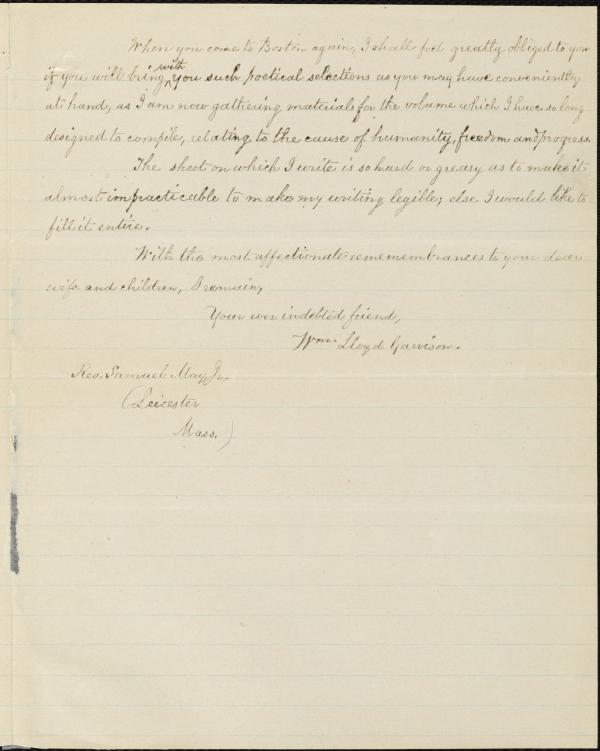 When you come to Boston again, I shall feel greatly obliged to you
if you will bring with you such poetical selections as you may have conveniently
at hand, as I am now gathering materials for the volume which I have so long
designed to compile, relating to the cause of humanity, freedom and progress.
The sheet on which I write is so hard or greasy as to make it
almost impracticable to make my writing legible; else I would like to
fill it entire.
With the most affectionate rememembrances to your dear
wife and children, I remain,
Your ever indebted friend,
Wm. Lloyd Garrison.
Rev. Samuel May, Jr.
(Leicester
Mass.)